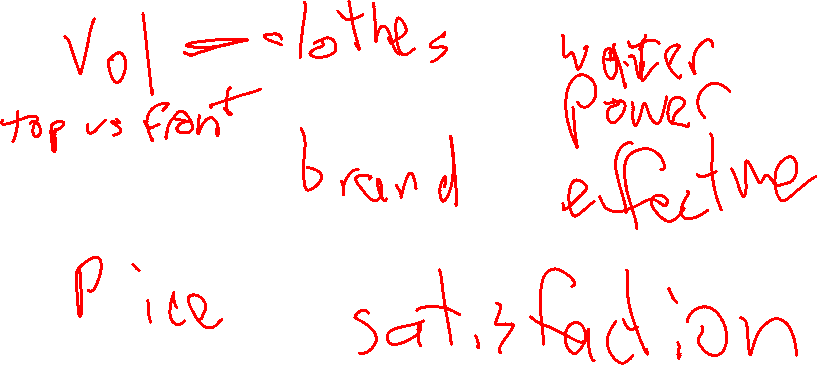 Vol = clothes
top vs front
brand
water
power
effective
Price
satisfaction